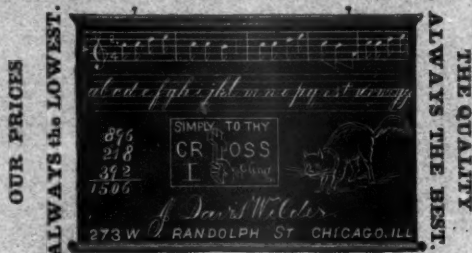 OUR PRICES
ALWAYS the LOWEST.
abcdefghijklmnopqrstuvwxyz
896
218
392
1506
SIMPLY TO THY
CROSS
I cling
J. Davis Wilder
273 W RANDOLPH ST CHICAGO, ILL
THE QUALITY
ALWAYS THE BEST.